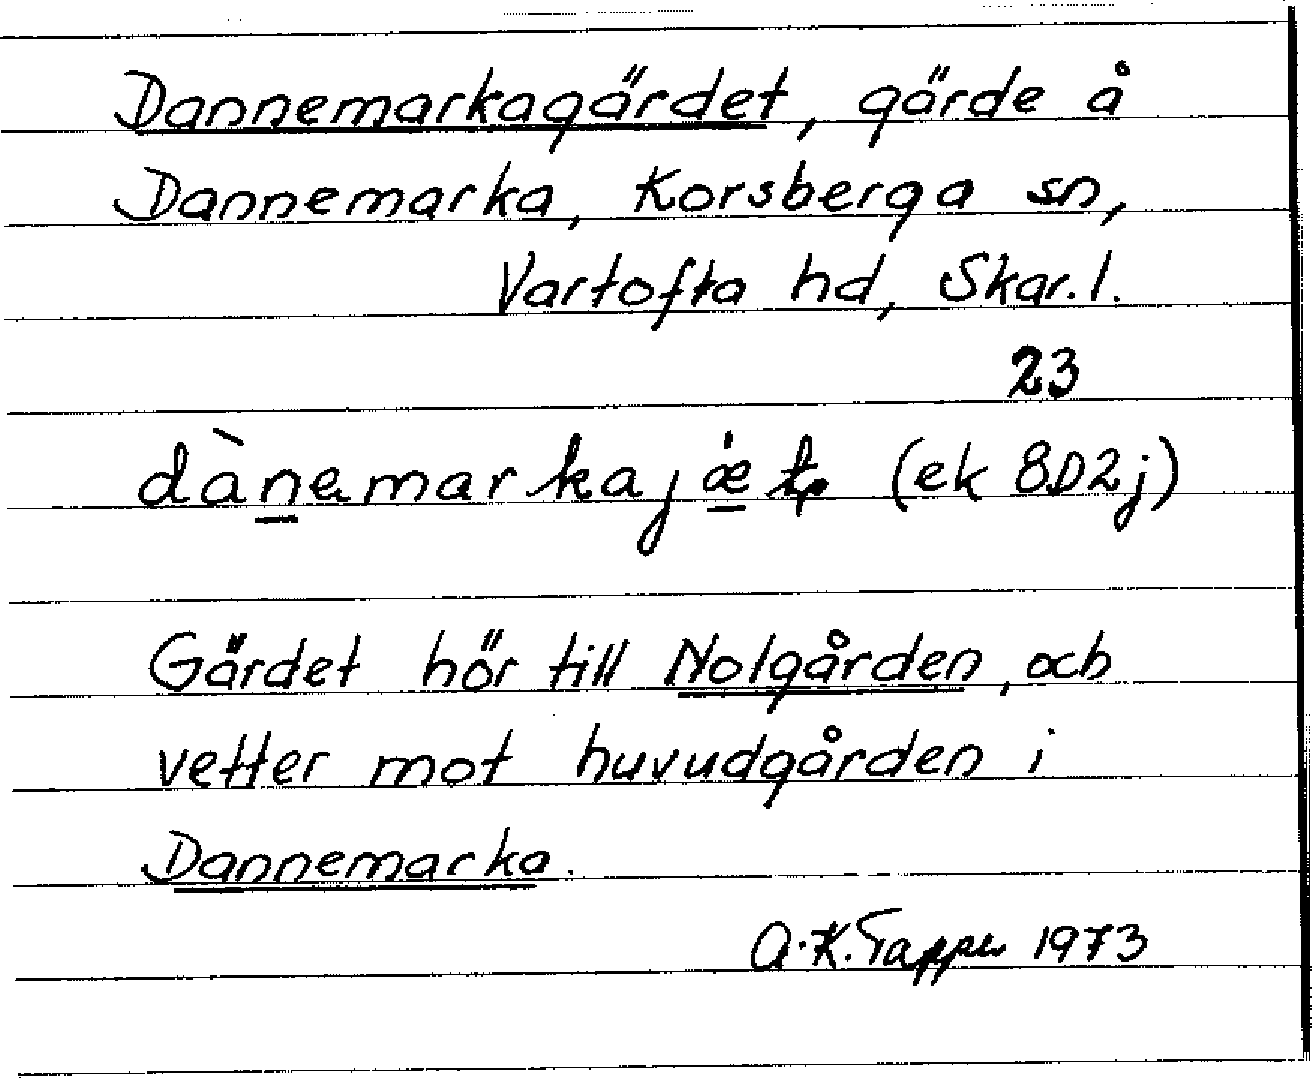 Dannemarkagärdet, gärde å
Dannemarka, Korsberga sn,
Vartofta hd, Skar.l.
23
(ek 8D2j)
Gärdet hör till Nolgården, och
vetter mot huvudgården i
Dannemarka.
A.K. Tapper 1973